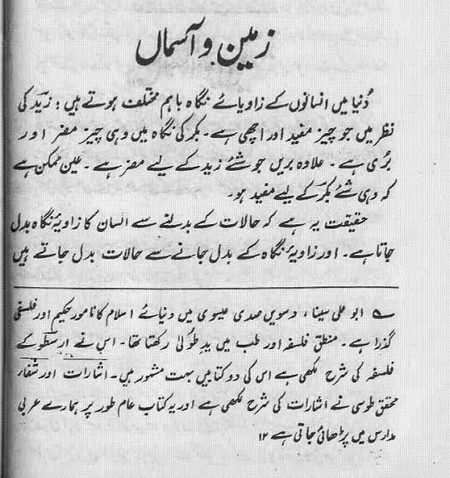 زمین و آسماں
دُنیا میں انسانوں کے زاویائے نگاہ باہم مختلف ہوتے ہیں: زید کی
نظر میں جو چیز مفید اور اچھی ہے۔ بکر کی نگاہ میں وہی چیز مضر اور
بُری ہے۔ علاوہ بریں جو شئے زید کے لیے مضر ہے۔ عین ممکن ہے
کہ وہی شئے بکر کے لیے مفید ہو۔
حقیقت یہ ہے کہ حالات کے بدلنے سے انسان کا زاویۂ نگاہ بدل
جاتا ہے۔ اور زاویۂ نگاہ کے بدل جانے سے حالات بدل جاتے ہیں
ابو علی سینا، دسویں صدی عیسوی میں دنیائے اسلام کا نامور حکیم اور فلسفی
گذرا ہے۔ منطق فلسفہ اور طب میں یدِ طولٰی رکھتا تھا۔ اس نے ارسطو کے
فلسفہ کی شرح لکھی ہے اس کی دو کتابیں بہت مشہور ہیں۔ اشارات اور شفار
محقق طوسی نے اشارات کی شرح لکھی ہے اور یہ کتاب عام طور پر ہمارے عربی
مدارس میں پڑھائی جاتی ہے ۱۲